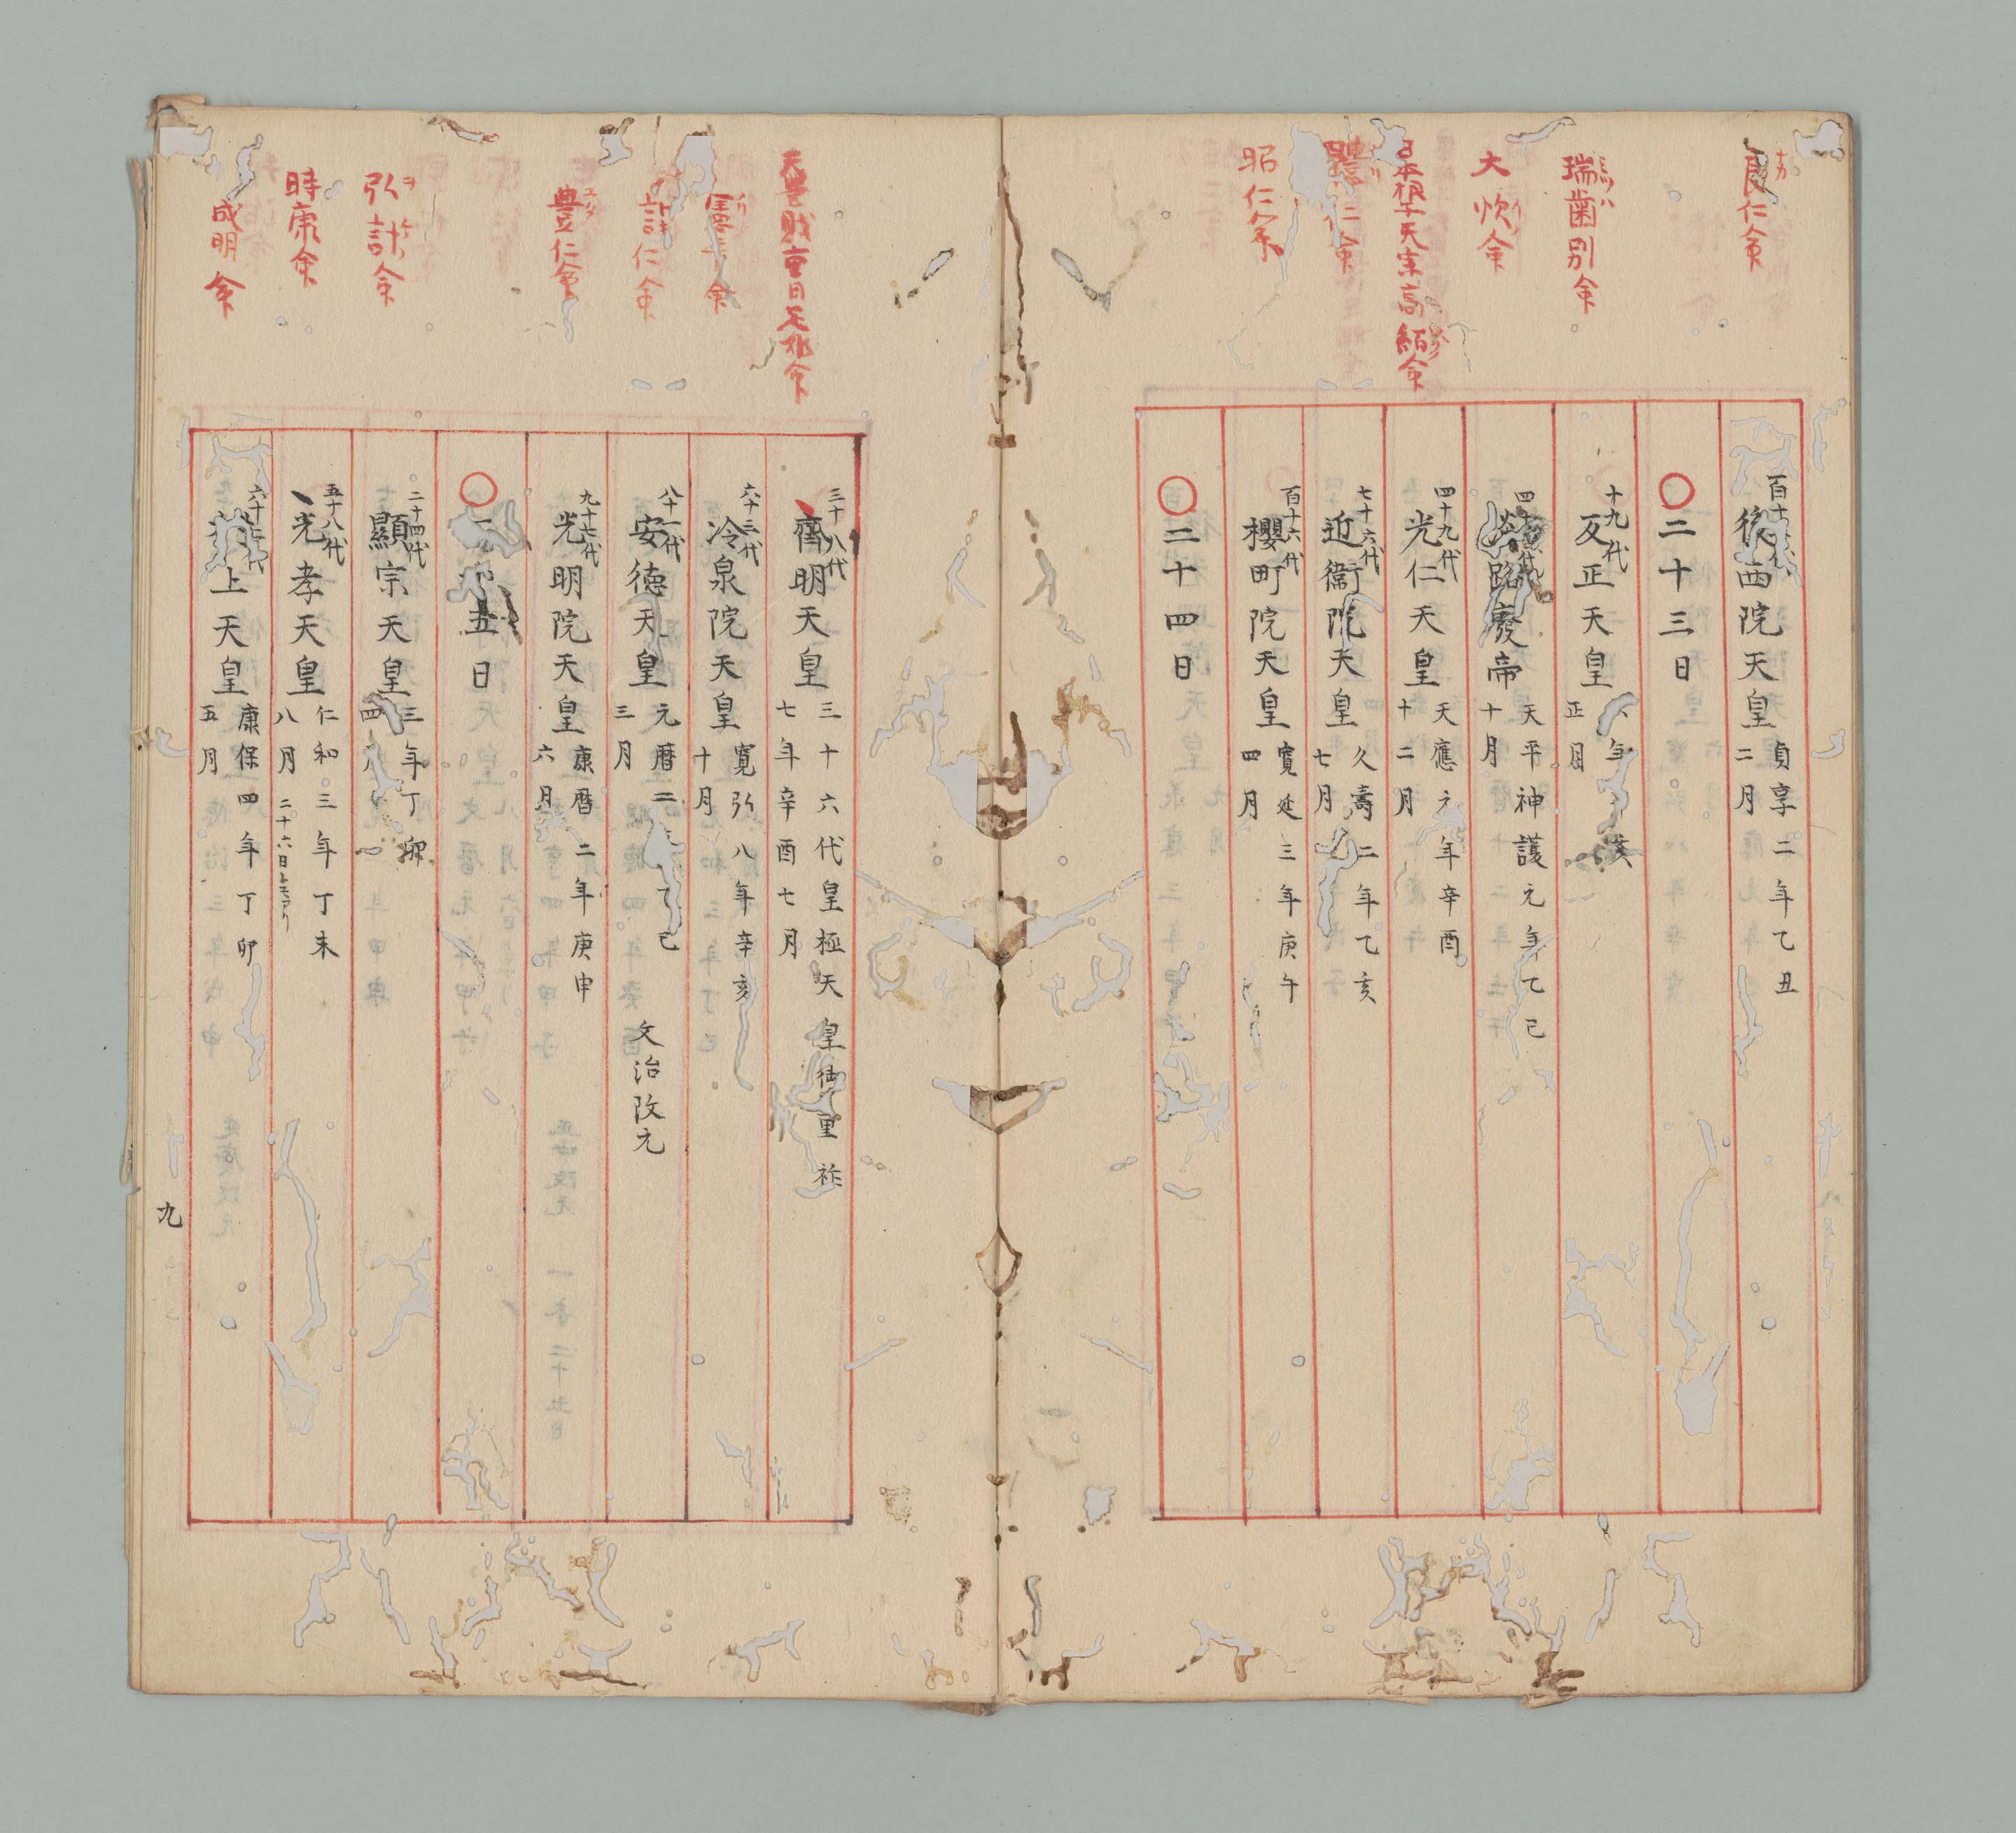 良仁命
百十
後西院天皇
貞享二年乙丑
二月
○二十三日
瑞歯別命
ミツハ
十九代
反正天皇
年
正月
大炊命
四十
路廢帝
天平神護元年乙巳
十月
日本根子天宗高紹命
四十九代
光仁天皇
天應元年辛酉
十二月
仁命
七十六代
近衞院天皇
久壽二年乙亥
七月
昭仁命
百十六代
櫻町院天皇
寛延三年庚午
四月
○二十四日
天豊財重日足姫命
三十八代
齊明天皇
三十六代皇極天皇御重祚
七年辛酉七月
命
六十三代
冷泉院天皇
寛弘八年辛亥
十月
仁命
八十一代
安徳天皇
元暦二 乙巳
三月
文治改元
豊仁命
九十七代
光明院天皇
康暦二年庚申
六月
○二 五日
弘計命
ヲ ケ
二十四代
顯宗天皇
三年丁卯
四
時康命
五十八代
光孝天皇
仁和三年丁未
八月 二十六日トモアリ
成明命
六十
上天皇
康保四年丁卯
五月
九